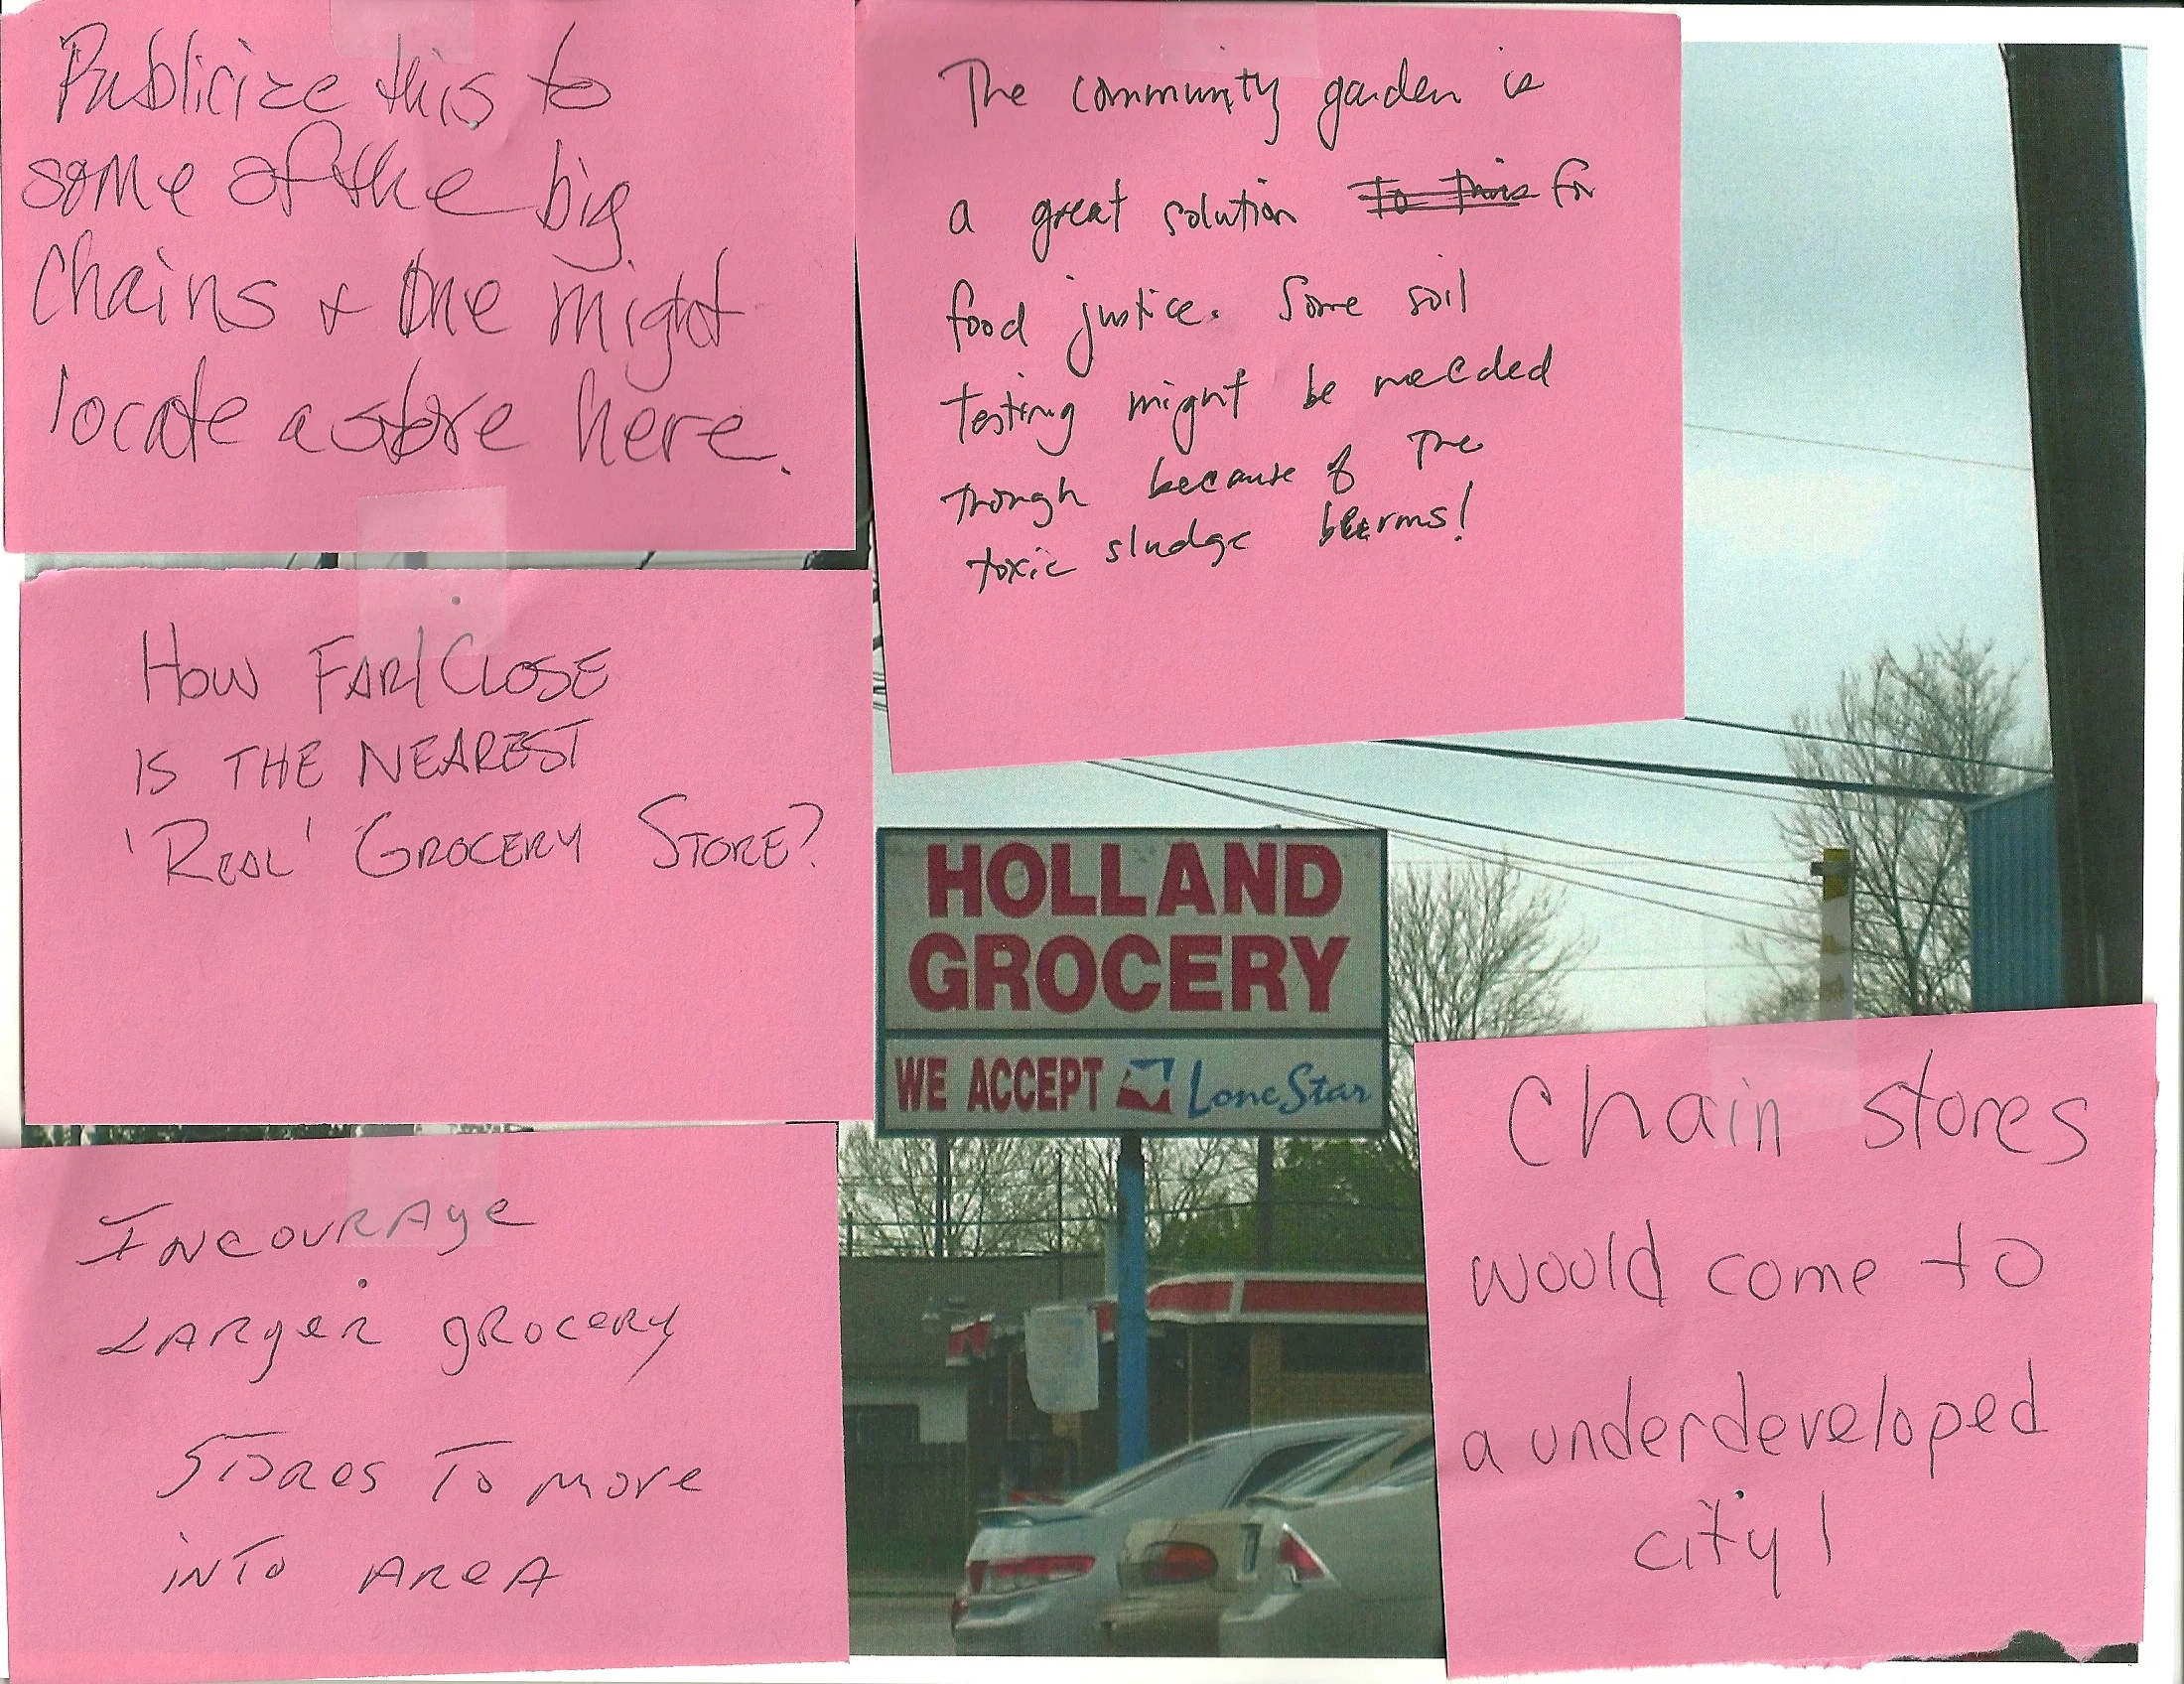 Publicize this to
some of the big
chains + one might
locate a store here.
The community garden is
a great solution to this for
food justice. Some soil
testing might be needed
though because of the
toxic sludge berms!
HOW FAR/CLOSE
IS THE NEAREST
'REAL' GROCERY STORE?
HOLLAND
GROCERY
WE ACCEPT LoneStar
INCOURAGE
LARGER GROCERY
STORES TO MOVE
INTO AREA
Chain stores
would come to
a underdeveloped
city!